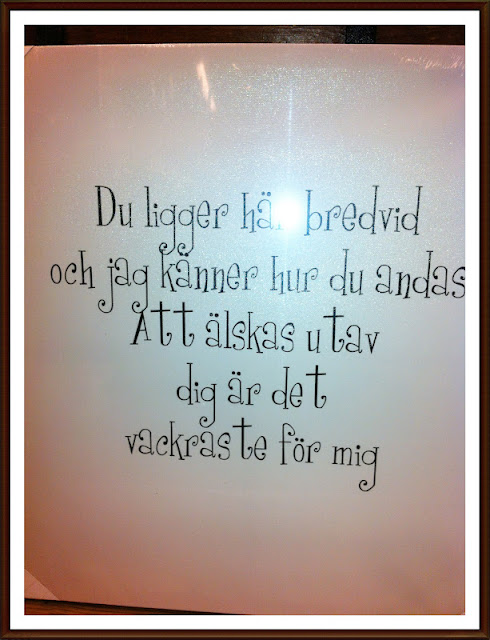 Du ligger här bredvid
och jag känner hur du andas
Att älskas utav
dig är det
vackraste för mig